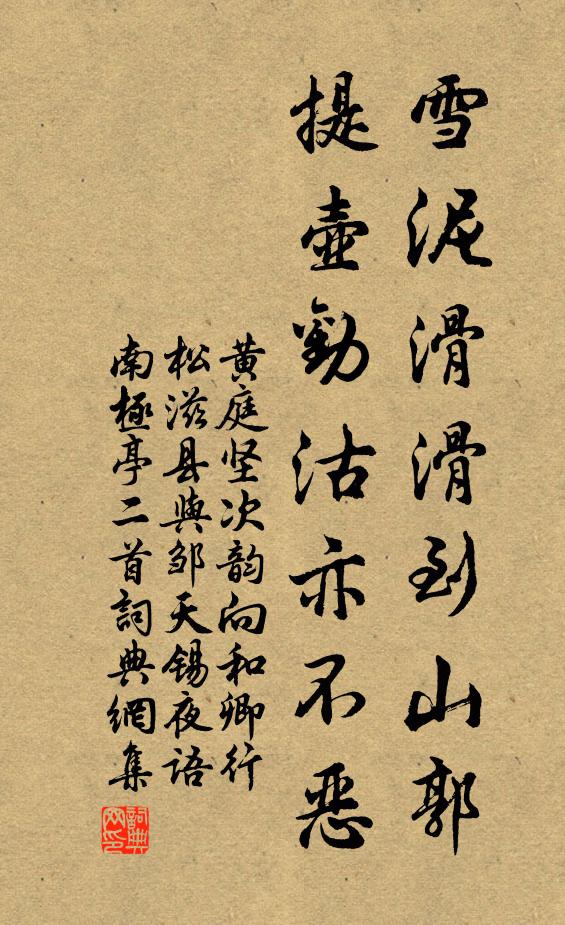 雪泥滑滑到山郭
提壺勸沽亦不恶
黄庭坚次韵向和卿行
松滋县與邹天锡夜语
南極亭二首詞典網集
詞典网印